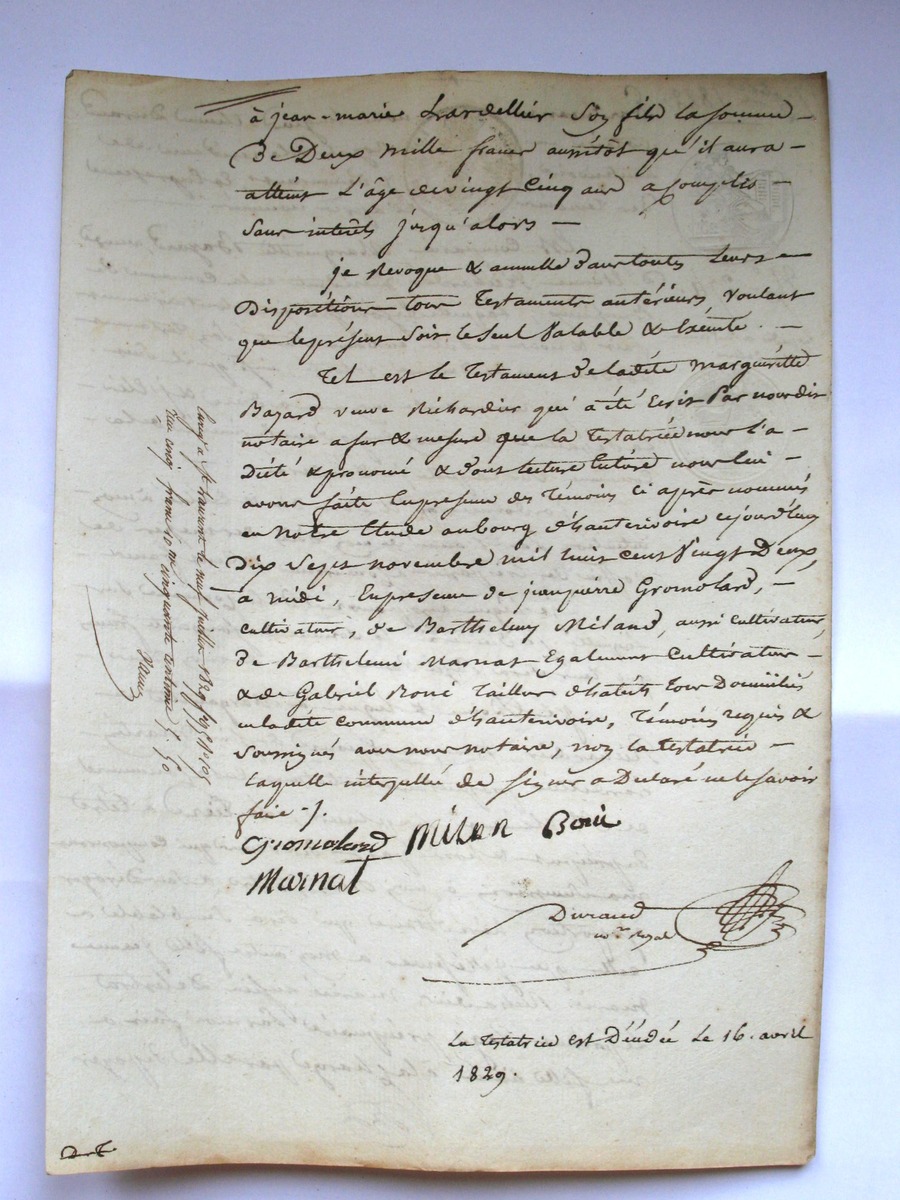 à jean-marie Lardellier Son fils la somme
De Deux mille francs aussitôt qu'il aura
atteint L'âge de vingt Cinq ans acomplis
Sans intérêts jusqu'alors
je Révoque & annulle dans toutes Leurs
Dispositions tous Testaments antérieurs, voulant
que le présent Soit le Seul Valable & Exécuté.
Tel est le Testament De ladite Marguéritte
Bazard veuve Richardier qui a été Ecrit Par nous dit
notaire a fur & mesure que la Testatrice nous l'a
Dicté & prononcé & dont lecture Entière nous lui
avons faite En presence des Témoins Ci après nommés
en Notre Etude au bourg d'hauterivoire cejourd'hui
Dix Sept novembre mil huit cent Vingt Deux,
a midi, En presence de jean pierre Gromolard,
cultivateur, de Barthelemy Miland, aussi cultivateur,
de Barthelemi Marnat Egalement Cultivateur
& de Gabriel Boué Tailleur d'habits tous Domiciliés
en ladite commune d'hauterivoire, Témoins requis &
Soussignés avec nous notaire, non la Testatrice
laquelle interpellée de Signer a Déclaré ne le Savoir
faire ./.
Gromolard Milan Boué
Marnat
Durand
nre Royal
La Testatrice est Décédée Le 16. avril
1829.
Enregé a St Laurent le neuf juillet 1829
Reçu cinq francs 10me cinquante centimes 5. 50